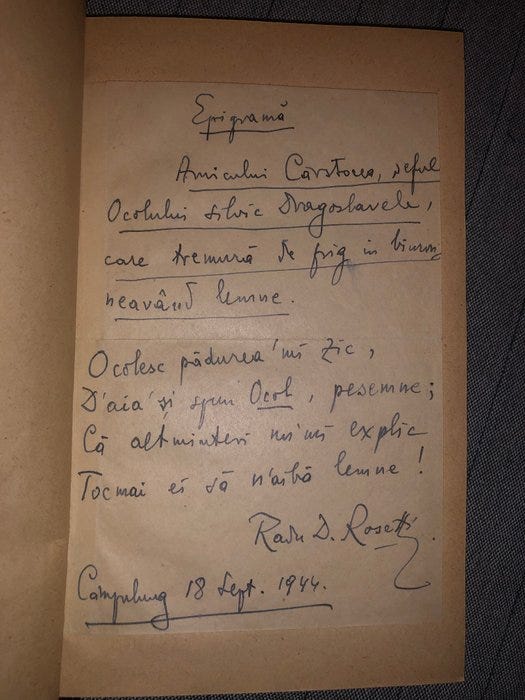 Epigramă
Amicului Cârstocea, șeful
Ocolului silvic Dragoslavele,
care tremură de frig in birou,
neavând lemne.
Ocolesc pădurea'mi zic,
D'aia'și spun Ocol, pesemne;
Că altminteri nu'mi explic
Tocmai ei să n'aibă lemne!
Radu D. Rosetti.
Câmpulung 18 Sept. 1944.